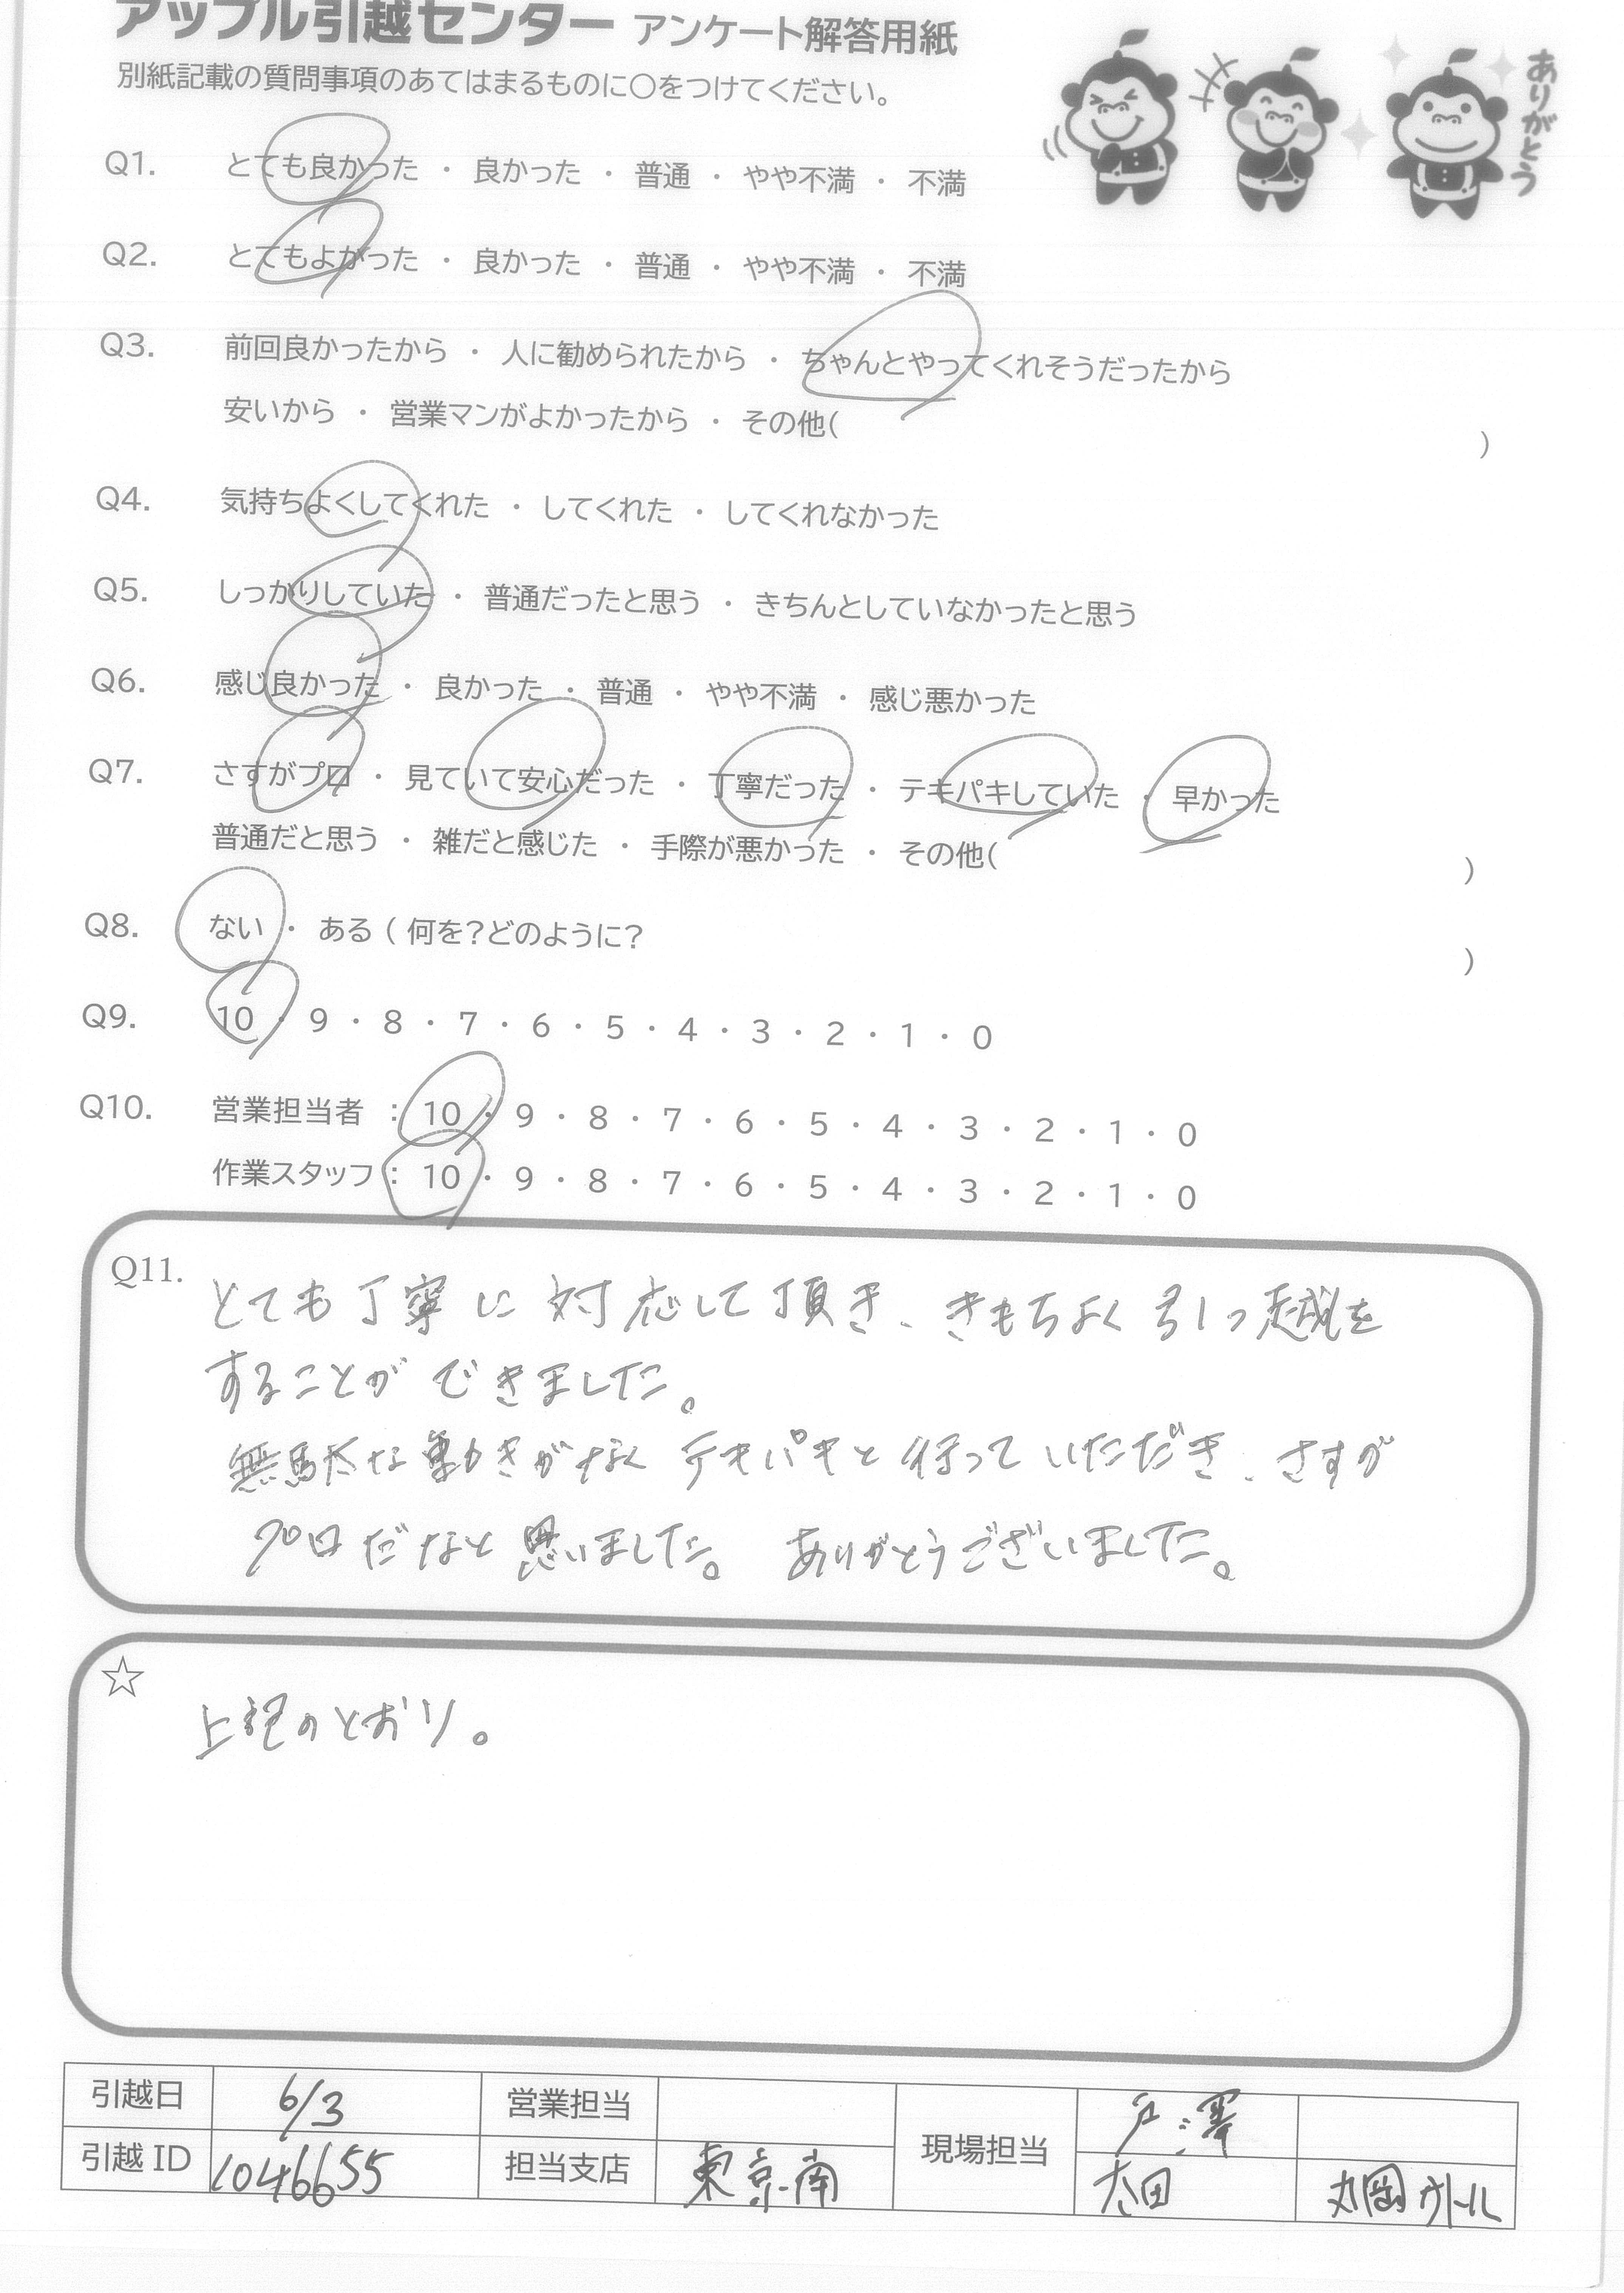 アップル引越センター アンケート解答用紙
別紙記載の質問事項のあてはまるものに○をつけてください。
ありがとう
Q1. とても良かった ・ 良かった ・ 普通 ・ やや不満 ・ 不満
Q2. とてもよかった ・ 良かった ・ 普通 ・ やや不満 ・ 不満
Q3. 前回良かったから ・ 人に勧められたから ・ ちゃんとやってくれそうだったから
安いから ・ 営業マンがよかったから ・ その他( )
Q4. 気持ちよくしてくれた ・ してくれた ・ してくれなかった
Q5. しっかりしていた ・ 普通だったと思う ・ きちんとしていなかったと思う
Q6. 感じ良かった ・ 良かった ・ 普通 ・ やや不満 ・ 感じ悪かった
Q7. さすがプロ ・ 見ていて安心だった ・ 丁寧だった ・ テキパキしていた ・ 早かった
普通だと思う ・ 雑だと感じた ・ 手際が悪かった ・ その他( )
Q8. ない ・ ある ( 何を?どのように? )
Q9. 10 ・ 9 ・ 8 ・ 7 ・ 6 ・ 5 ・ 4 ・ 3 ・ 2 ・ 1 ・ 0
Q10. 営業担当者 : 10 ・ 9 ・ 8 ・ 7 ・ 6 ・ 5 ・ 4 ・ 3 ・ 2 ・ 1 ・ 0
作業スタッフ : 10 ・ 9 ・ 8 ・ 7 ・ 6 ・ 5 ・ 4 ・ 3 ・ 2 ・ 1 ・ 0
Q11. とても丁寧に対応して頂き、きもちよく引っ越しを
することができました。
無駄な動きがなく テキパキと行っていただき、さすが
プロだなと思いました。 ありがとうございました。
☆
上記のとおり。
引越日 6/3 営業担当 現場担当 戸澤
引越 ID 1046655 担当支店 東京南 太田 丸岡